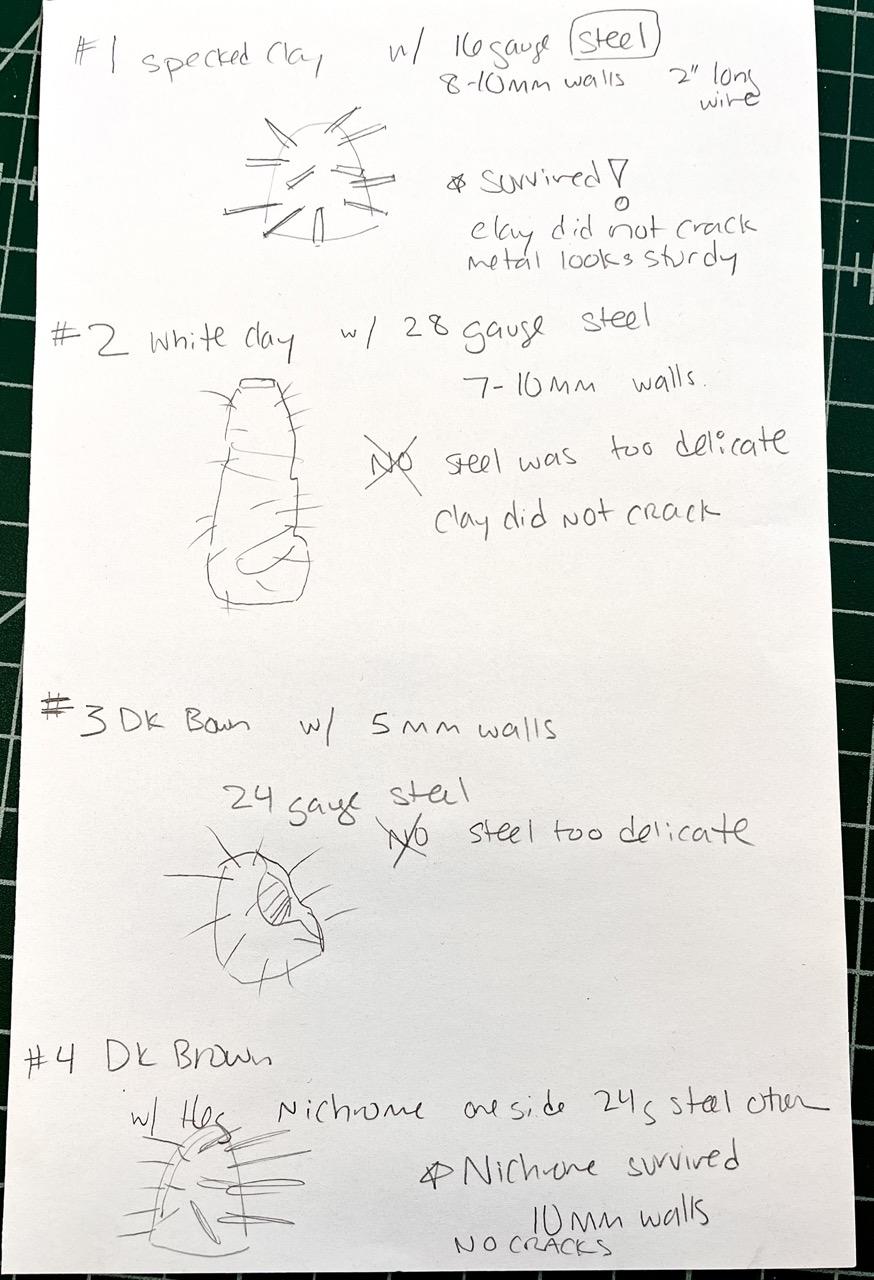 #1 specked clay w/ 16gauge steel
8-10mm walls 2" long
wire
survived!
clay did not crack
metal looks sturdy
#2 white clay w/ 28 gauge steel
7-10mm walls.
NO steel was too delicate
clay did not crack
#3 Dk Bown w/ 5mm walls
24 gauge steel
NO steel too delicate
#4 Dk Brown
w/ Nichrome one side 24g steel other
Nichrome survived
10mm walls
NO CRACKS